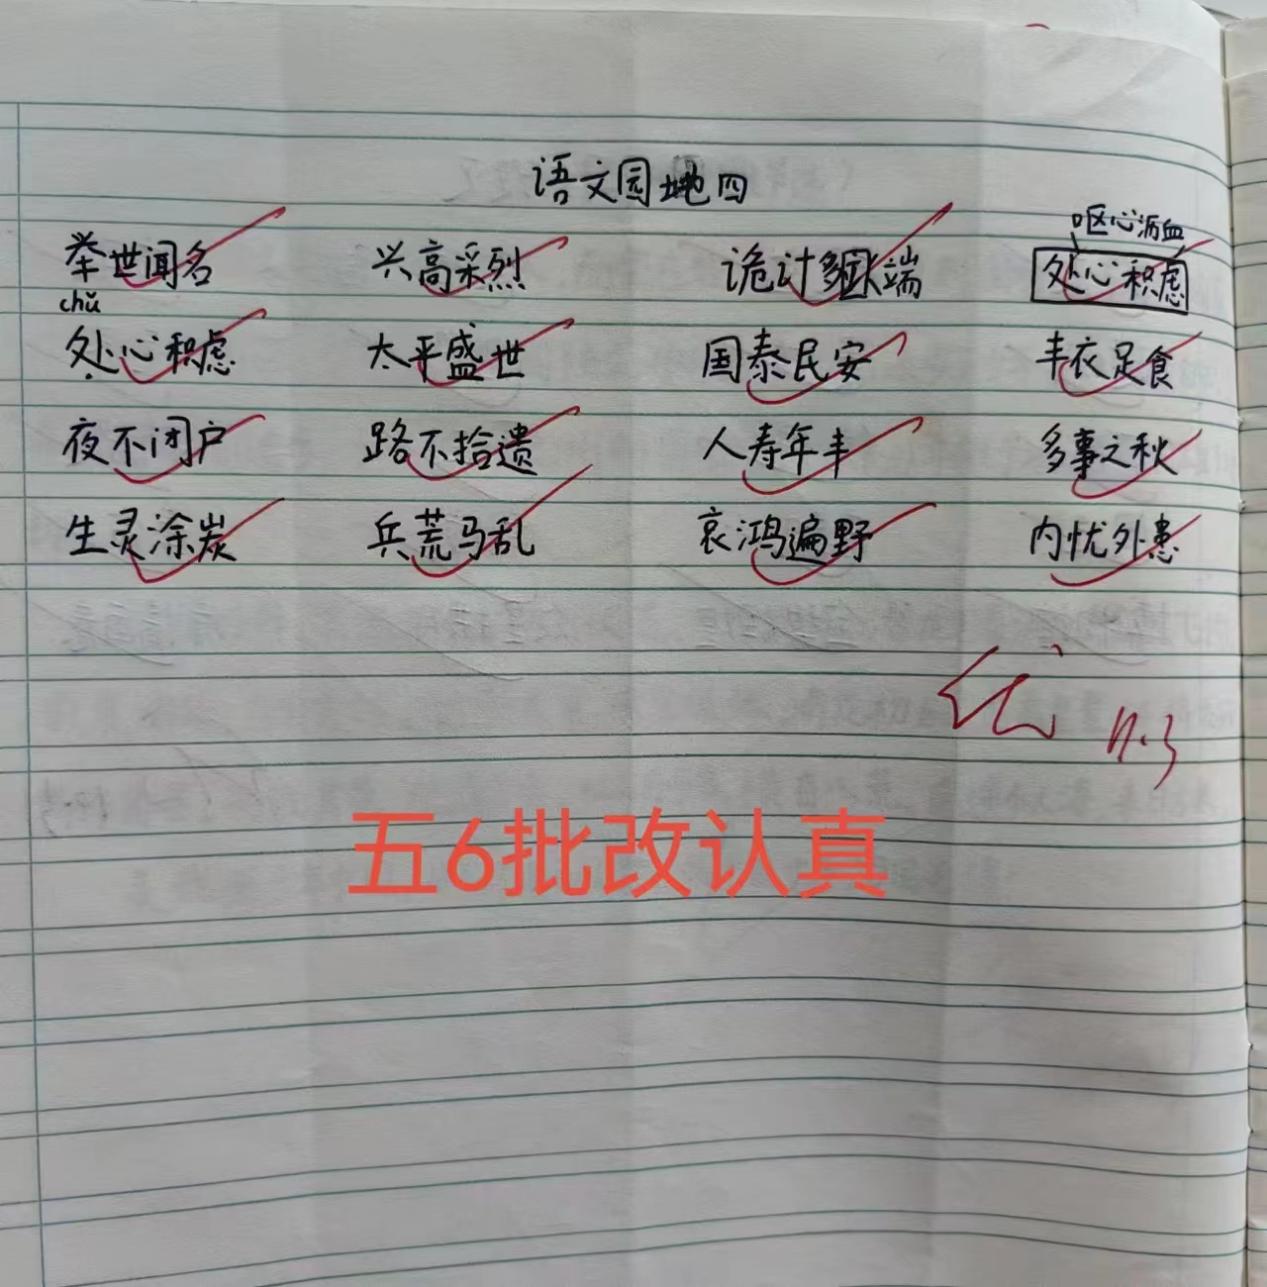 语文园地四
呕心沥血
举世闻名 兴高采烈 诡计多端 处心积虑
chǔ
处心积虑 太平盛世 国泰民安 丰衣足食
夜不闭户 路不拾遗 人寿年丰 多事之秋
生灵涂炭 兵荒马乱 哀鸿遍野 内忧外患
优 11.3
五6批改认真